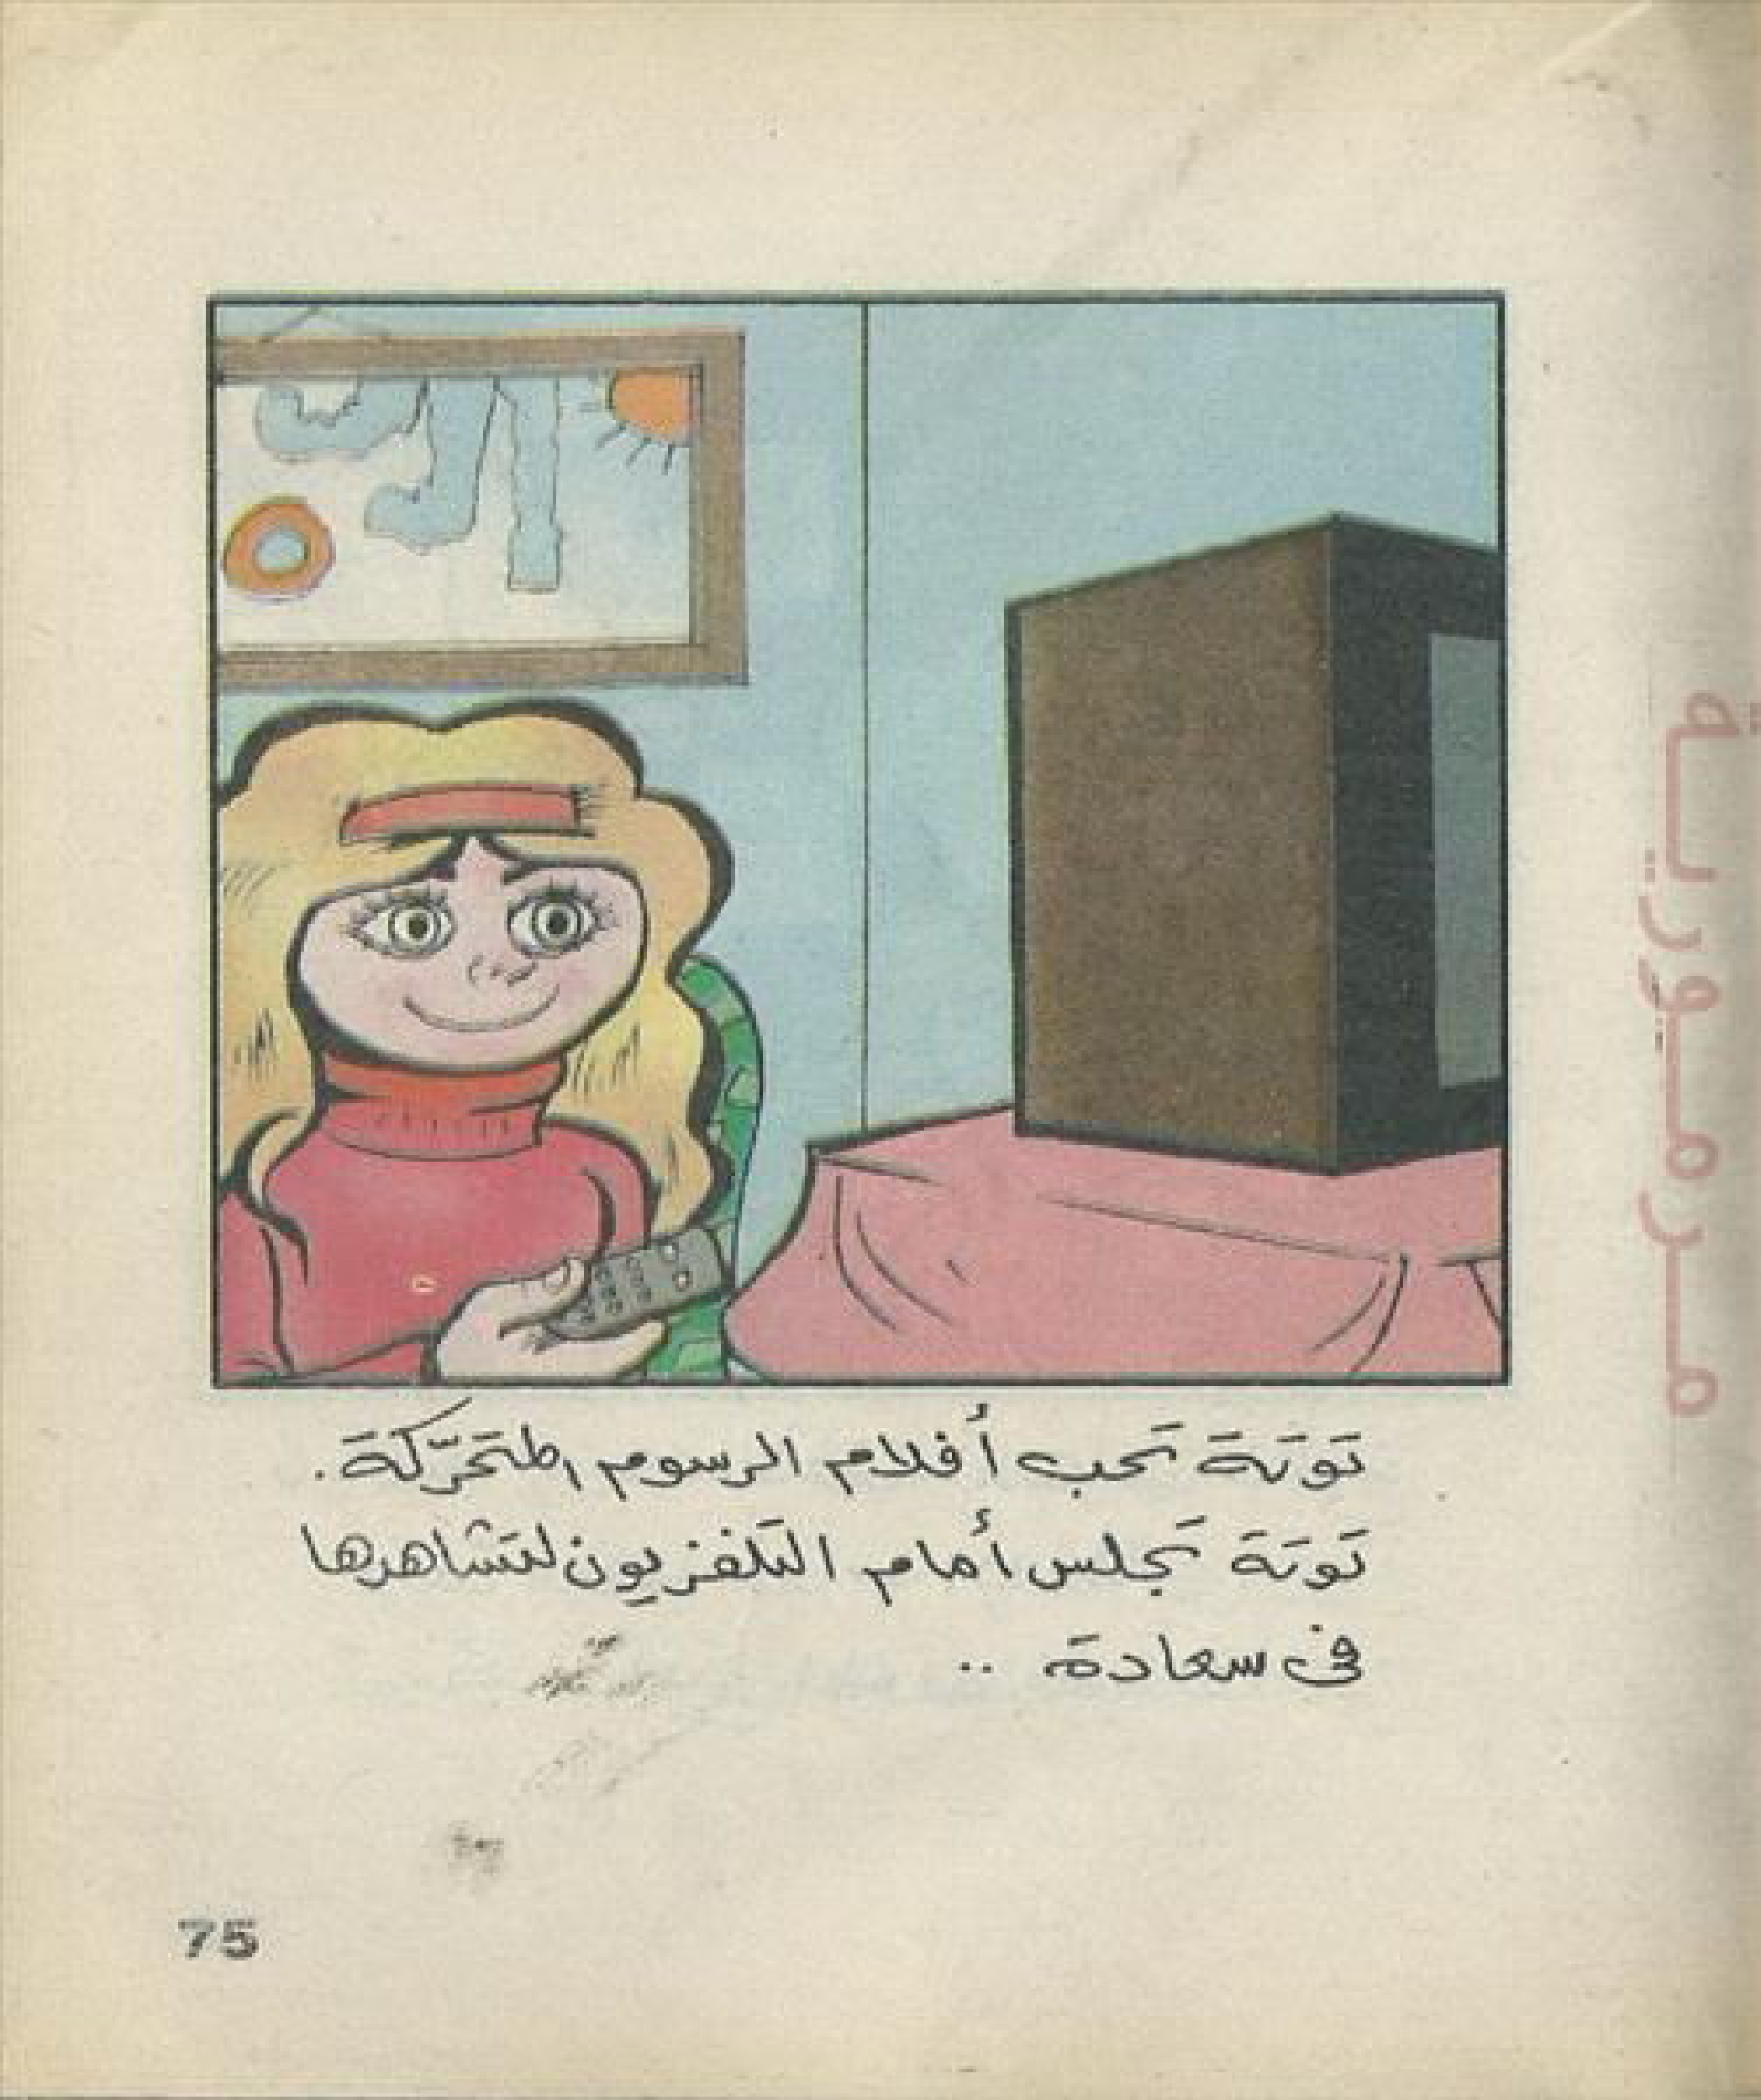 توتة تحب أفلام الرسوم المتحرّكة.
توتة تجلس أمام التلفزيون لتشاهدها
فى سعادة ..
75
مرمورية